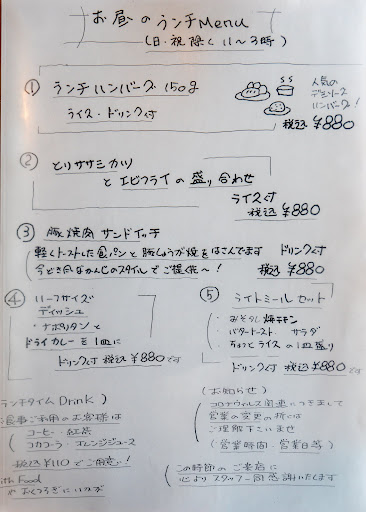 お昼のランチMenu
(日・祝除く 11〜3時)
① ランチハンバーグ 150g
ライス・ドリンク付
人気の
デミソース
ハンバーグ!
税込 ¥880
② とりササミカツ
とエビフライの盛り合わせ
ライス付
税込 ¥880
③ 豚焼肉サンドイッチ
軽くトーストした食パンと豚しょうが焼をはさんでます ドリンク付
今どきのなかんじのスタイルでご提供〜! 税込 ¥880
④ ハーフサイズ
ディッシュ
・ナポリタンと
ドライカレーを1皿に
ドリンク付 税込 ¥880です
⑤ ライトミールセット
・みそだれ焼チキン
・バタートースト・サラダ
・ちょっとライスの1皿盛り
ドリンク付 税込 ¥880です
ランチタイム Drink)
食事ご利用のお客様は
(コーヒー・紅茶
コカコーラ・オレンジジュース
税込 ¥110でご用意!
ith Food
おくつろぎに
(お知らせ)
コロナウィルス関連につきまして
営業の変更の折には
ご理解下さいませ
(営業時間・営業日等)
この時節のご来店に
心よりスタッフ一同感謝いたします